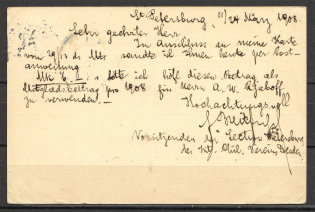 St. Petersburg, 11/24 März 1908.
Sehr geehrter Herr
Im Anschluss an meine Karte
vom 29/10 ds Mts sandte ich Ihnen heute per Post-
anweisung
Mk 6.– bitte ich höfl diesen Betrag als
Mitgliedsbeitrag pro 1908 für Herrn A. W.
zu verwenden.–
Hochachtungsvoll
Vorsitzender der Section Petersburg
des Int. Phil. Vereins Dresden